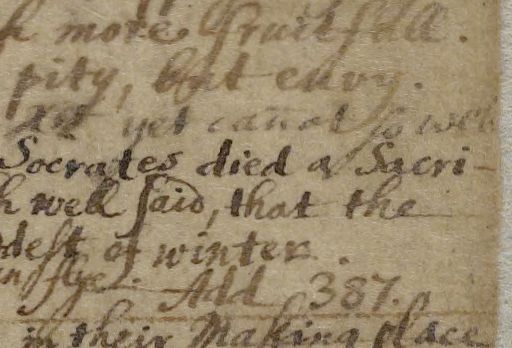 more fruitfull.
pity, but envy.
yet canot so well
Socrates died a Sacri-
well said, that the
of winter.
Add 387.
in their Making place